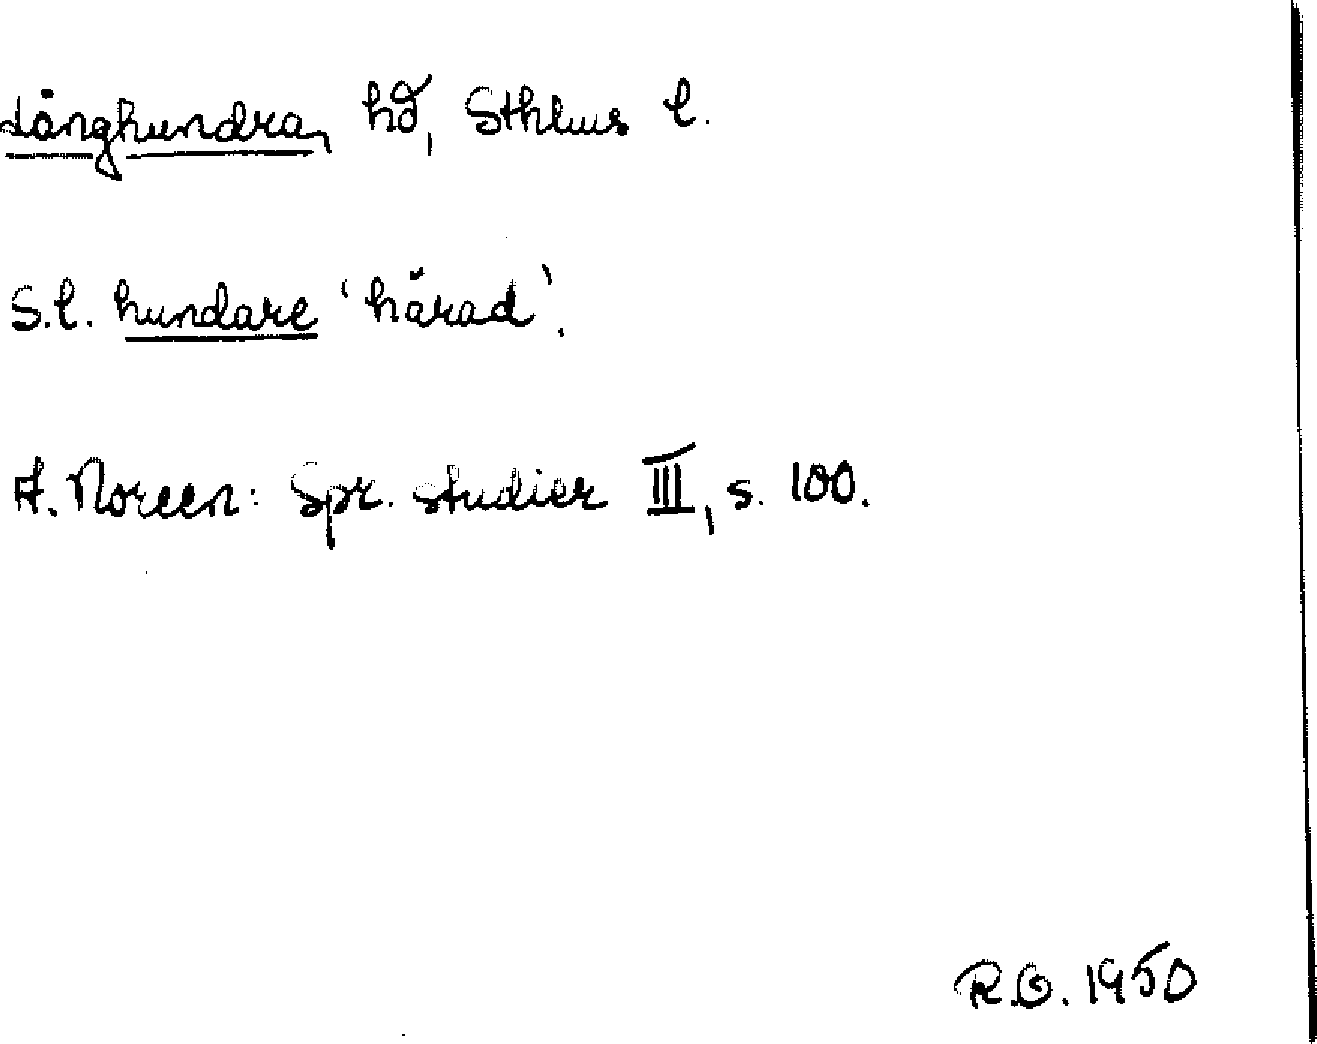 Långhundra, hd, Sthlms l.
S.l. hundare 'härad'.
A. Noreen: Spr. studier III, s. 100.
R.G. 1950